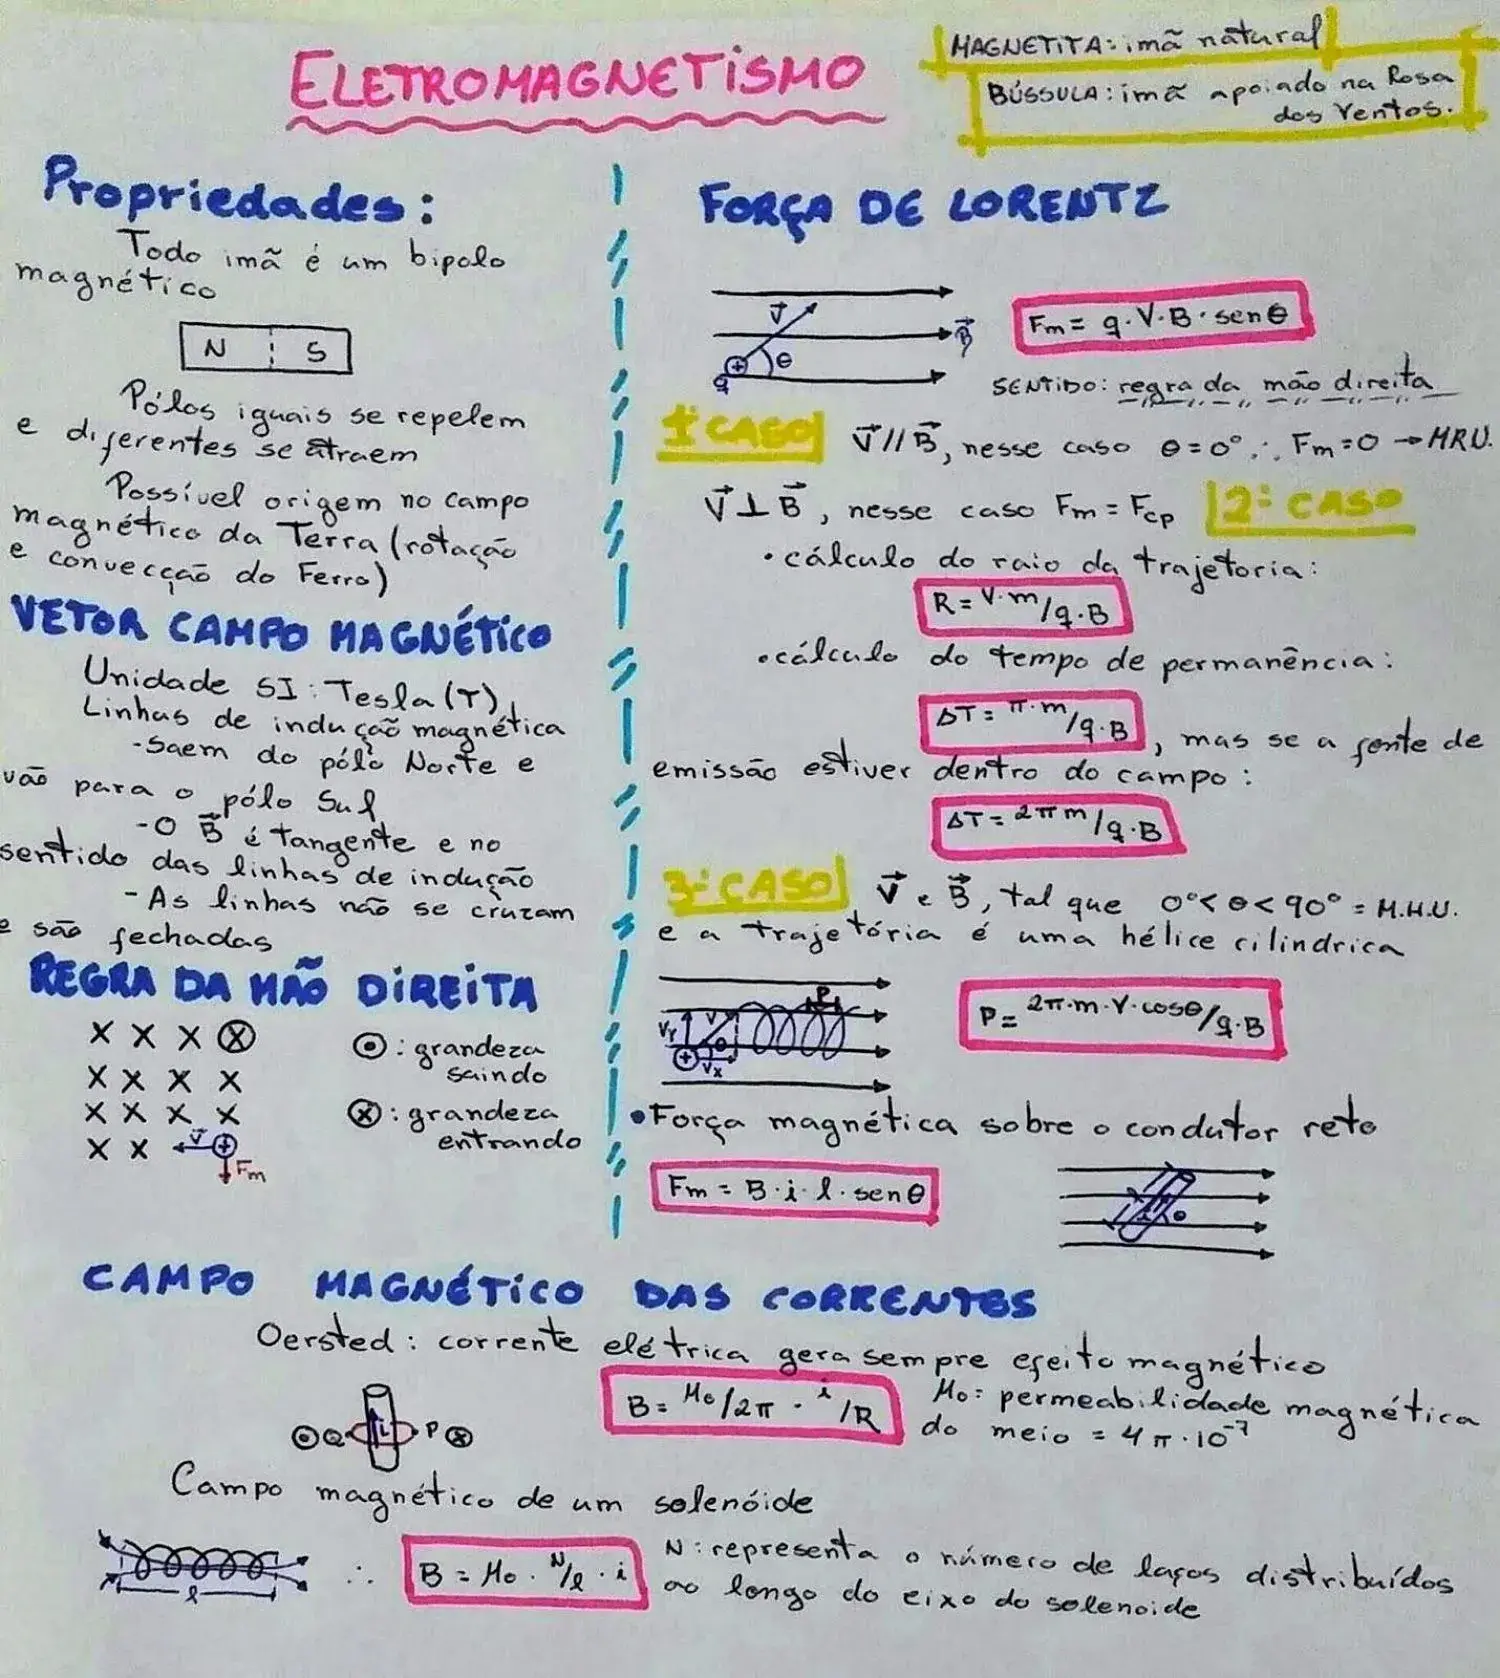 ELETROMAGNETISMO
MAGNETITA: imã natural
BÚSSULA: imã apoiado na Rosa
dos Ventos.
Propriedades:
Todo imã é um bipolo
magnético
N S
Pólos iguais se repelem
e diferentes se atraem
Possível origem no campo
magnético da Terra (rotação
e convecção do Ferro)
VETOR CAMPO MAGNÉTICO
Unidade SI: Tesla (T)
Linhas de indução magnética
- Saem do pólo Norte e
vão para o pólo Sul
- O B⃗ é tangente e no
sentido das linhas de indução
- As linhas não se cruzam
e são fechadas
REGRA DA MÃO DIREITA
X X X ⊗
X X X X
X X X X
X X V⃗ +
Fm
⊙: grandeza
saindo
⊗: grandeza
entrando
FORÇA DE LORENTZ
V⃗
B⃗
+ θ
q
Fm = q.V.B.senθ
SENTIDO: regra da mão direita
1º CASO V⃗//B⃗, nesse caso θ=0° ∴ Fm=0 → MRU.
V⃗⊥B⃗, nesse caso Fm = Fcp 2º CASO
• cálculo do raio da trajetoria:
R = V.m/q.B
• cálculo do tempo de permanência:
ΔT = π.m/q.B, mas se a fonte de
emissão estiver dentro do campo:
ΔT = 2πm/q.B
3º CASO V⃗ e B⃗, tal que 0°<θ<90° = M.H.U.
e a trajetória é uma hélice cilindrica
P
Vy V
+ θ
Vx
P = 2π.m.V.cosθ/q.B
• Força magnética sobre o condutor reto
Fm = B.i.l.senθ
i θ
CAMPO MAGNÉTICO DAS CORRENTES
Oersted: corrente elétrica gera sempre efeito magnético
B = Mo/2π . i/R
Mo: permeabilidade magnética
do meio = 4π.10⁻⁷
⊙ Q i P ⊗
Campo magnético de um solenóide
l
∴ B = Mo . N/l . i
N: representa o número de laços distribuídos
ao longo do eixo do solenoide